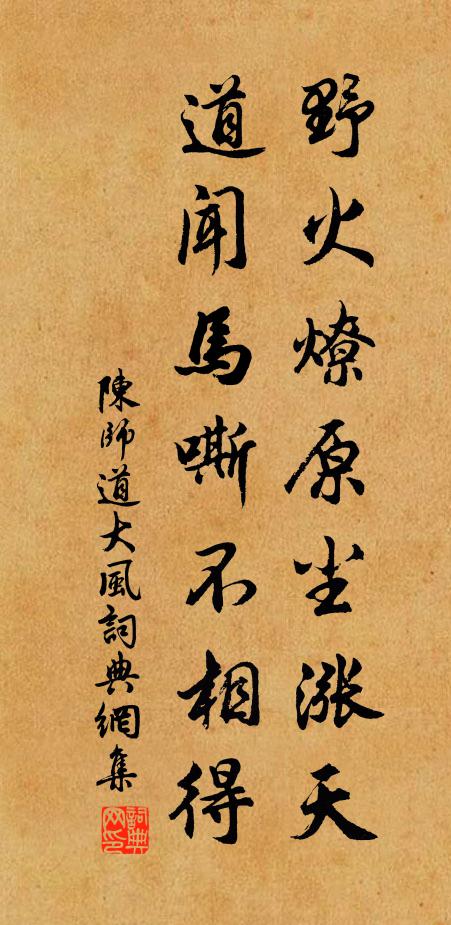 野火燎原尘漲天
道聞馬嘶不相得
陳師道大風詞典網集
詞典網印